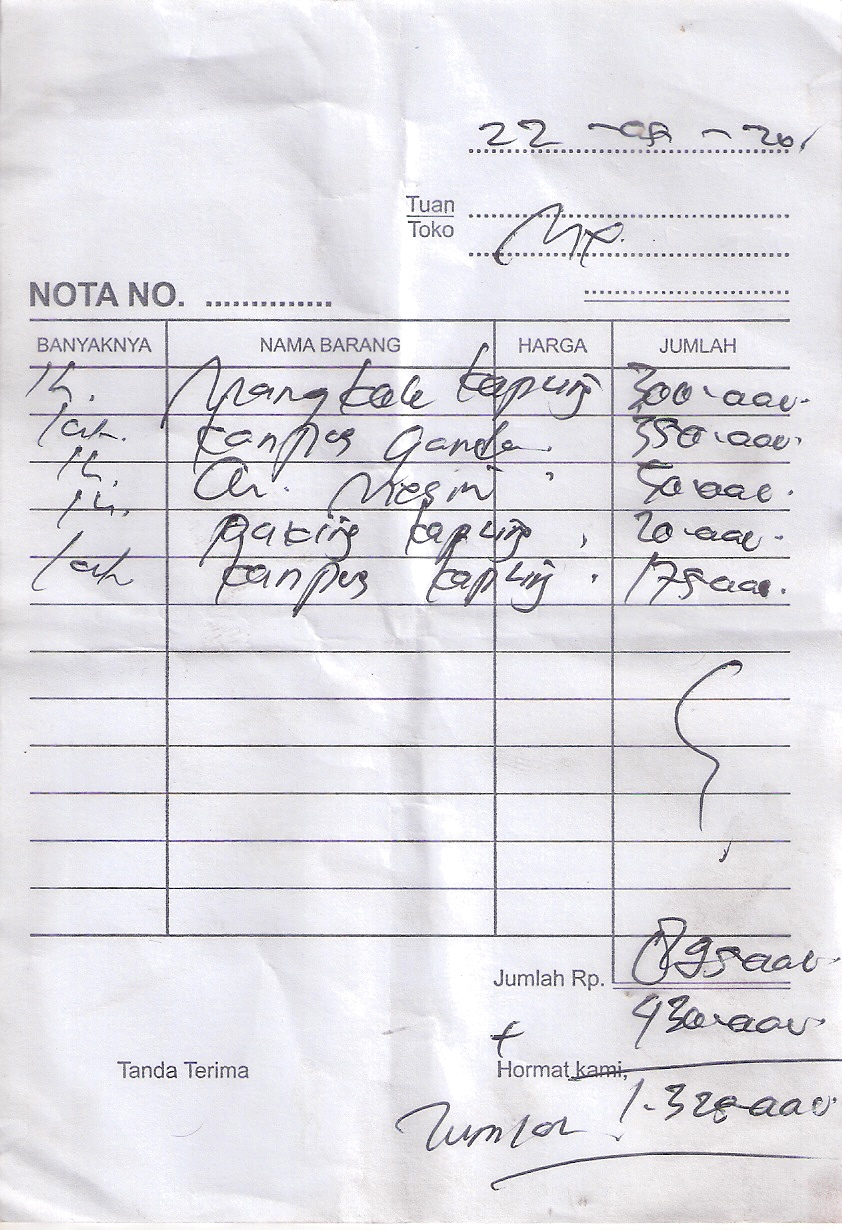 22 - 09 - 201
Tuan
Toko
NOTA NO. ..............
BANYAKNYA NAMA BARANG HARGA JUMLAH
1 h. Mangkok kopling 300.000.
1 bh. kanpas Ganda. 350.000.
1 h. Oli Mesin 50.000.
1 h. paking kopling 20.000.
1 bh kanpas kopling 175.000.
Jumlah Rp. 895.000.
+ 430.000.
Tanda Terima Hormat kami,
Jumlah 1.325.000.